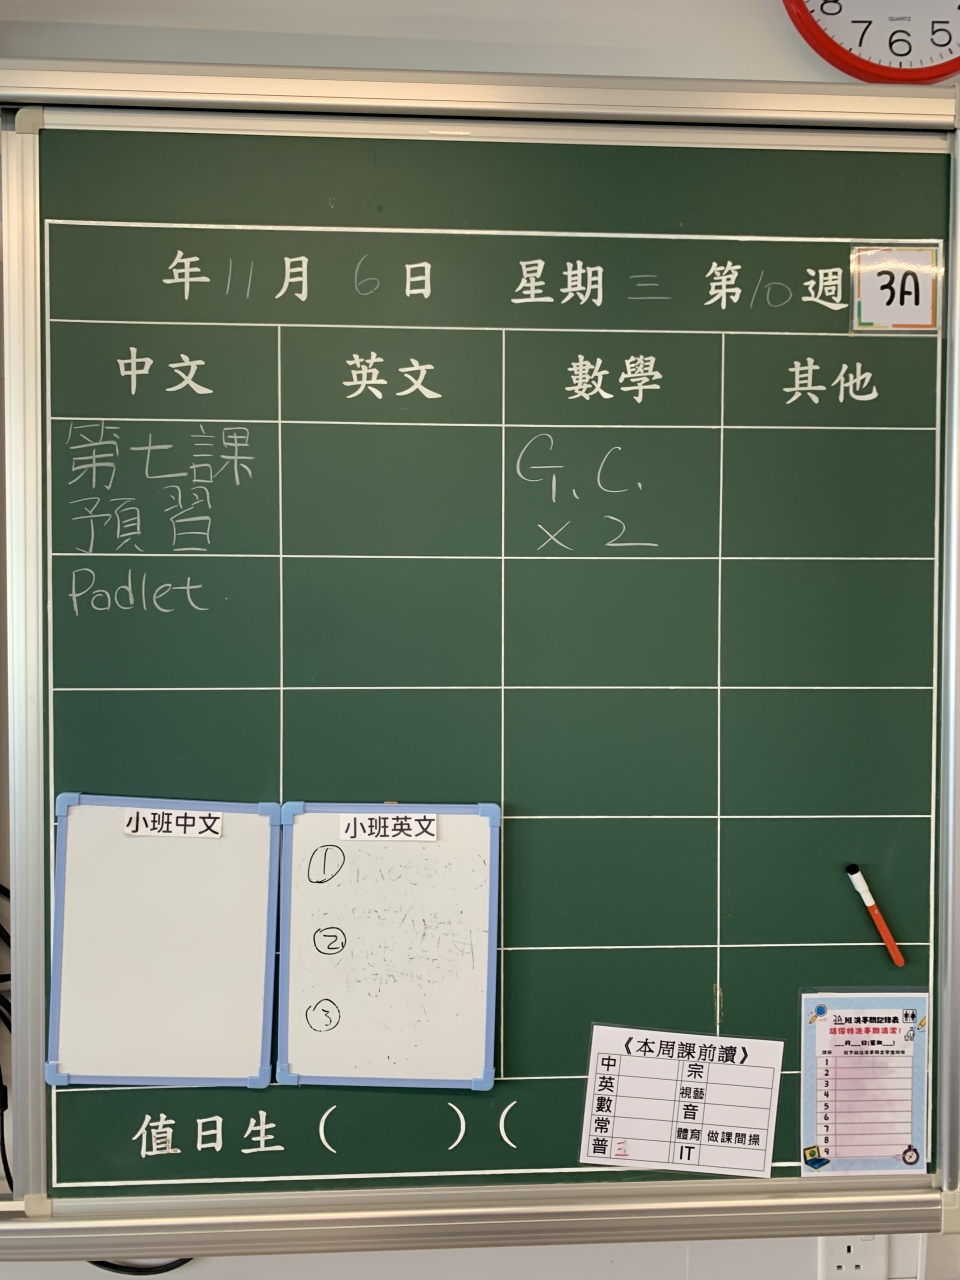 8 7 6 5
QUARTZ
年 11 月 6 日 星期 三 第 10 週 3A
中文 英文 數學 其他
第七課
預習
G.C.
x 2
Padlet
小班中文
小班英文
①
②
③
《本周課前讀》
中 宗
英 視藝
數 音
常 體育 做課間操
普 三 IT
3A 班洗手間記錄表
請保持洗手間清潔!
___月___日(星期___)
1
2
3
4
5
6
7
8
9
值日生 ( ) (